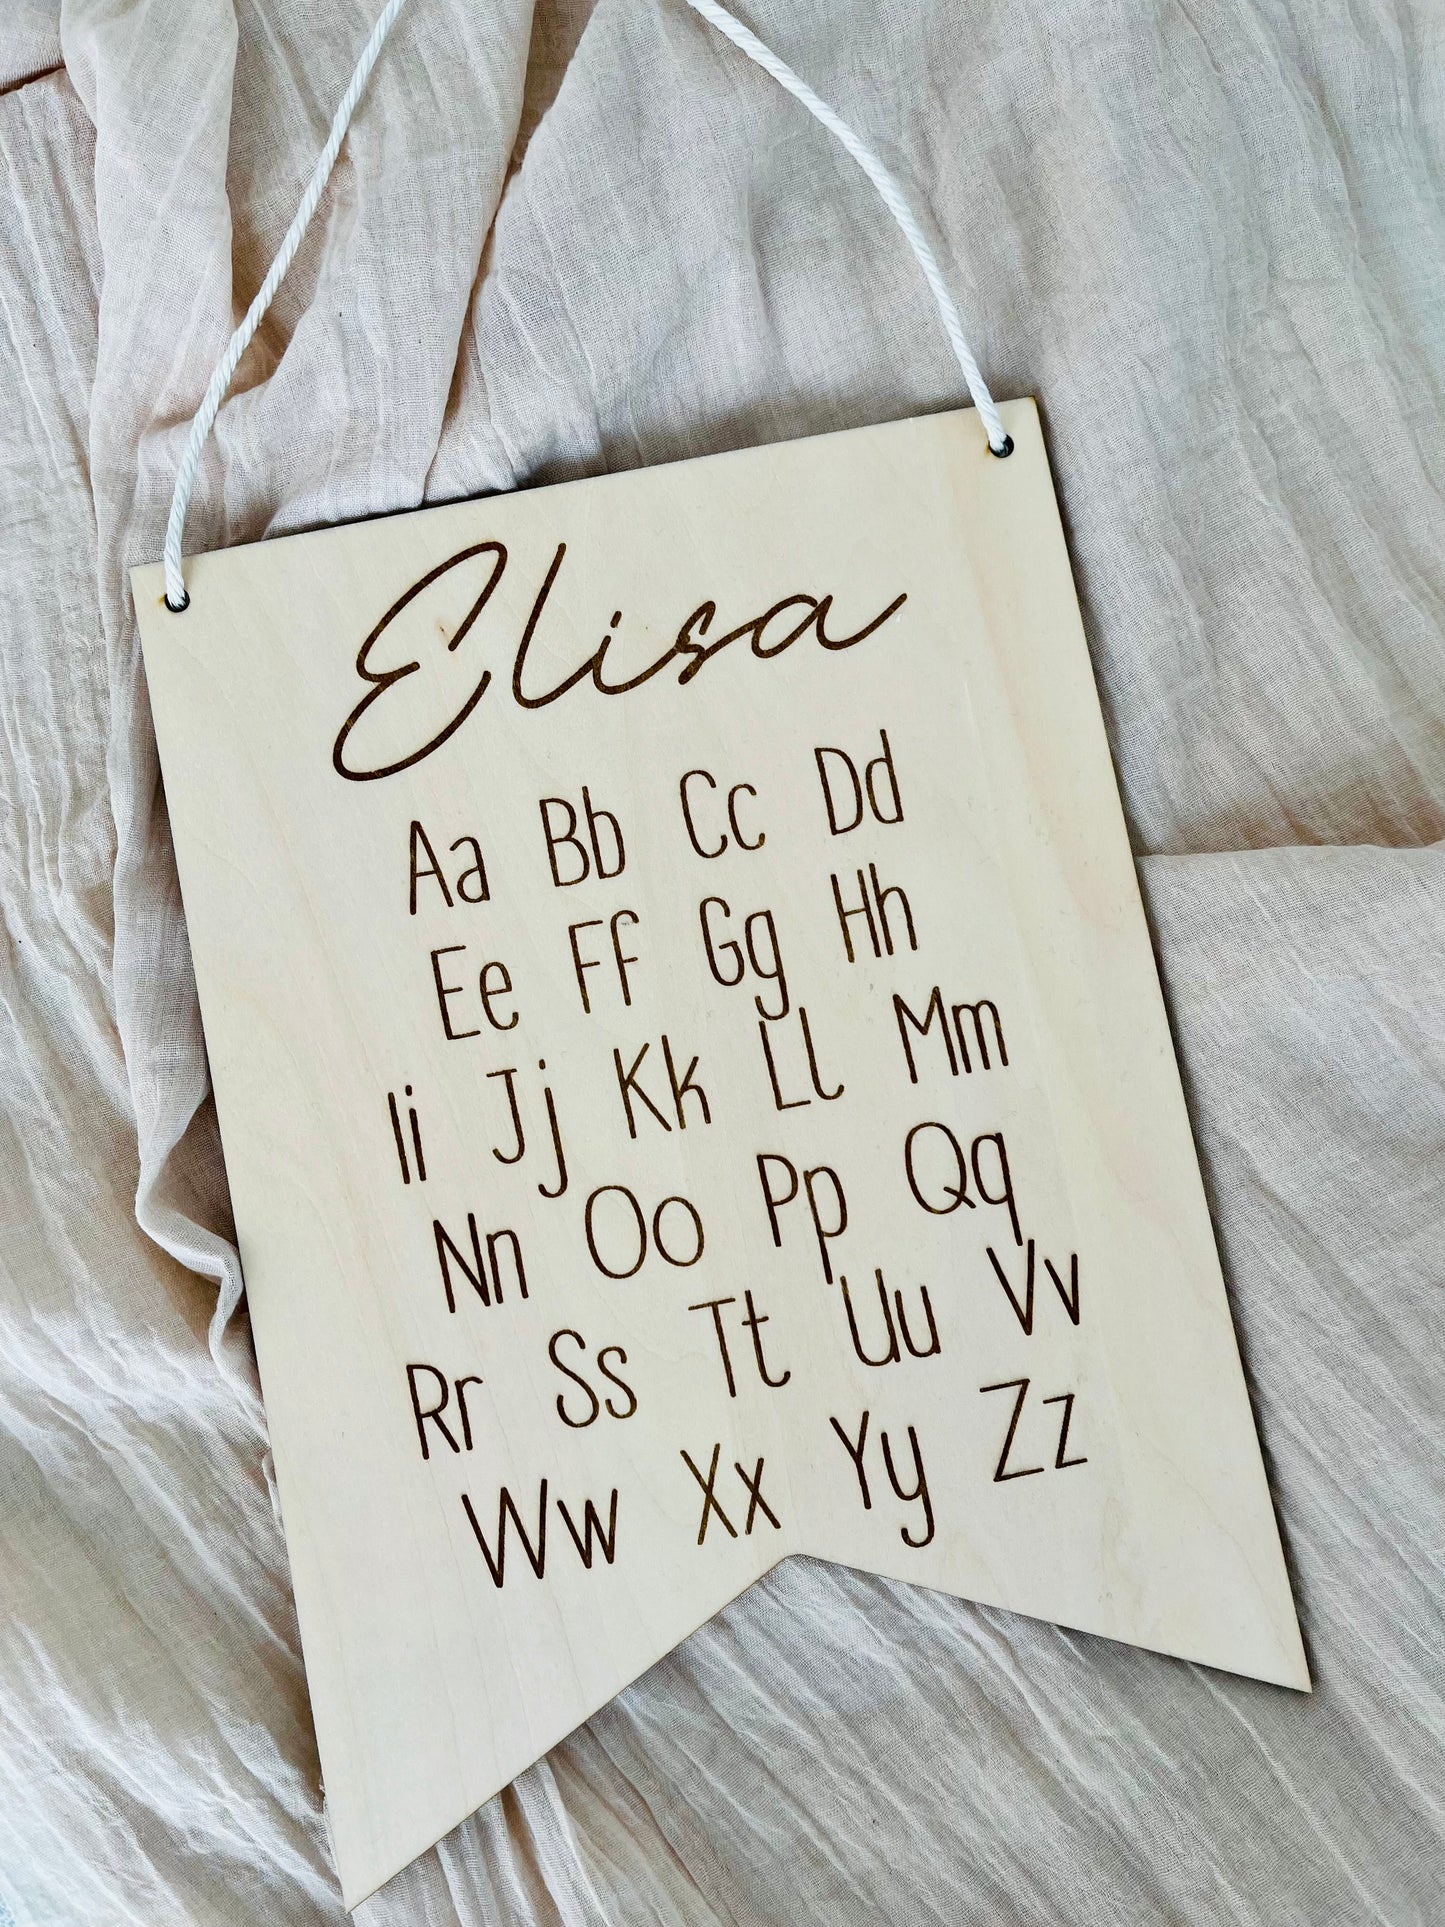 Elisa
Aa Bb Cc Dd
Ee Ff Gg Hh
Ii Jj Kk Ll Mm
Nn Oo Pp Qq
Rr Ss Tt Uu Vv
Ww Xx Yy Zz